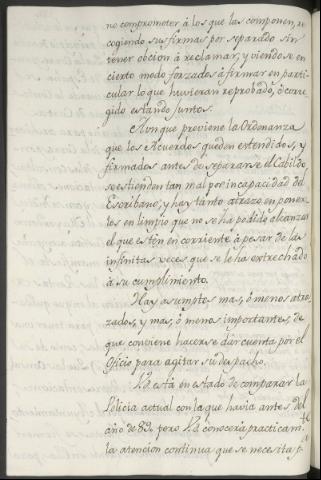 no comprometer á los que las componen, re
cogiendo sus firmas por separado sin
tener obcion à reclamar, y viendose en
cierto modo forzados à firmar en parti-
cular lo que huvieran reprobado, ò corre
gido estando juntos.
Aunque previene la Ordenanza
que los Acuerdos queden extendidos, y
firmados antes de separarse el Cabildo,
se estienden tan mal por incapacidad del
Escribano, y hay tanto atrazo en poner-
los en limpio que no se há podido alcanzar
el que estèn en corriente à pesar de las
infinitas veces que se le ha extrechado
à su cumplimiento.
Hay asumptos mas, ò menos atra-
zados, y mas, ò menos importantes, de
que conviene hacerse dar cuenta por el
Oficio para agitar su despacho.
está en estado de comparar la
Policia actual con la que havia antes del
año de 89, pero conocerá practicamte
la atencion continua que se necesita pa